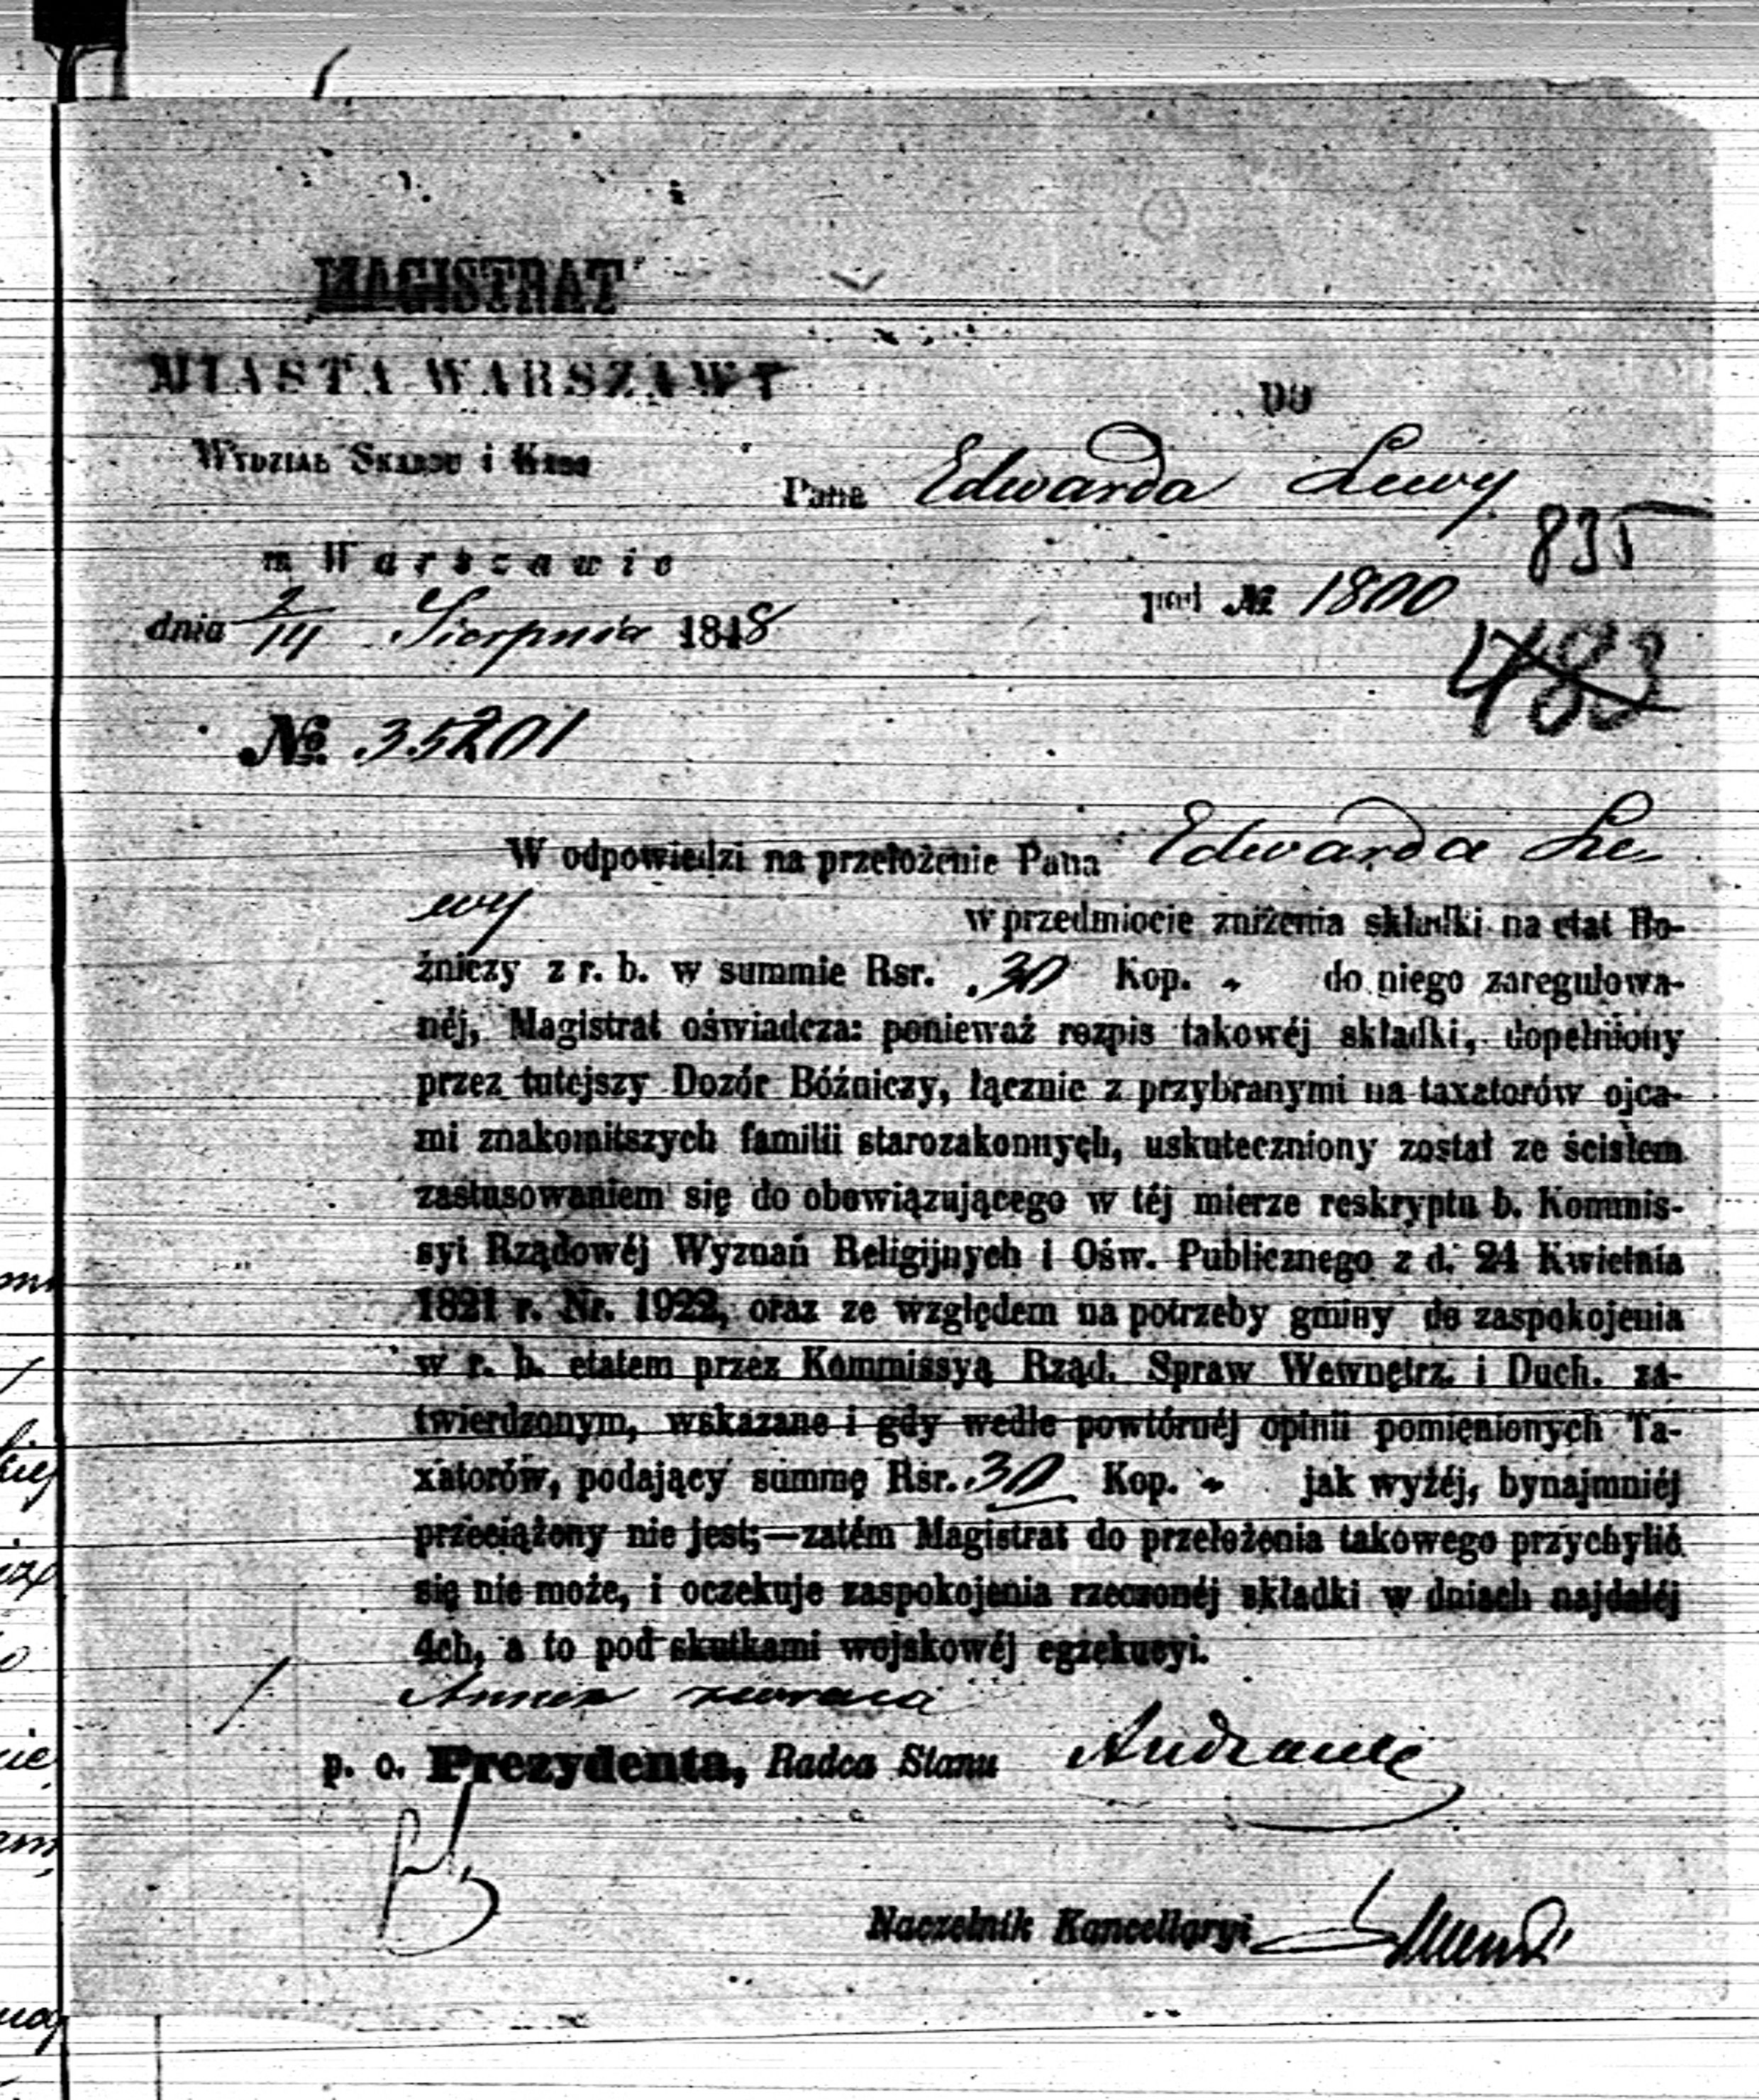 MAGISTRAT
MIASTA WARSZAWY
Do
WYDZIAŁ SKARBU i KASS
Pana Edwarda Lewy
835
w Warszawie
pod № 1800
dnia 2/14 Sierpnia 1848
483
№ 35201
W odpowiedzi na przełożenie Pana Edwarda Le-
wy w przedmiocie zniżenia składki na etat Bo-
źniczy z r. b. w summie Rsr. 30 Kop. „ do niego zaregulowa-
néj, Magistrat oświadcza: ponieważ rozpis takowéj składki, dopełniony
przez tutejszy Dozór Bóźniczy, łącznie z przybranymi na taxatorów ojca-
mi znakomitszych familii starozakonnych, uskuteczniony został ze ścisłem
zastosowaniem się do obowiązującego w téj mierze reskryptu b. Kommis-
syi Rządowéj Wyznań Religijnych i Ośw. Publicznego z d. 24 Kwietnia
1821 r. Nr. 1922, oraz ze względem na potrzeby gminy do zaspokojenia
w r. b. etatem przez Kommissyą Rząd. Spraw Wewnętrz. i Duch. za-
twierdzonym, wskazane i gdy wedle powtórnéj opinii pomienionych Ta-
xatorów, podający summę Rsr. 30 Kop. „ jak wyżéj, bynajmniéj
przeciążony nie jest;—zatém Magistrat do przełożenia takowego przychylić
się nie może, i oczekuje zaspokojenia rzeczonéj składki w dniach najdaléj
4ch, a to pod skutkami wojskowéj egzekucyi.
Annex zwraca
p. o. Prezydenta, Radca Stanu
Naczelnik Kancellaryi